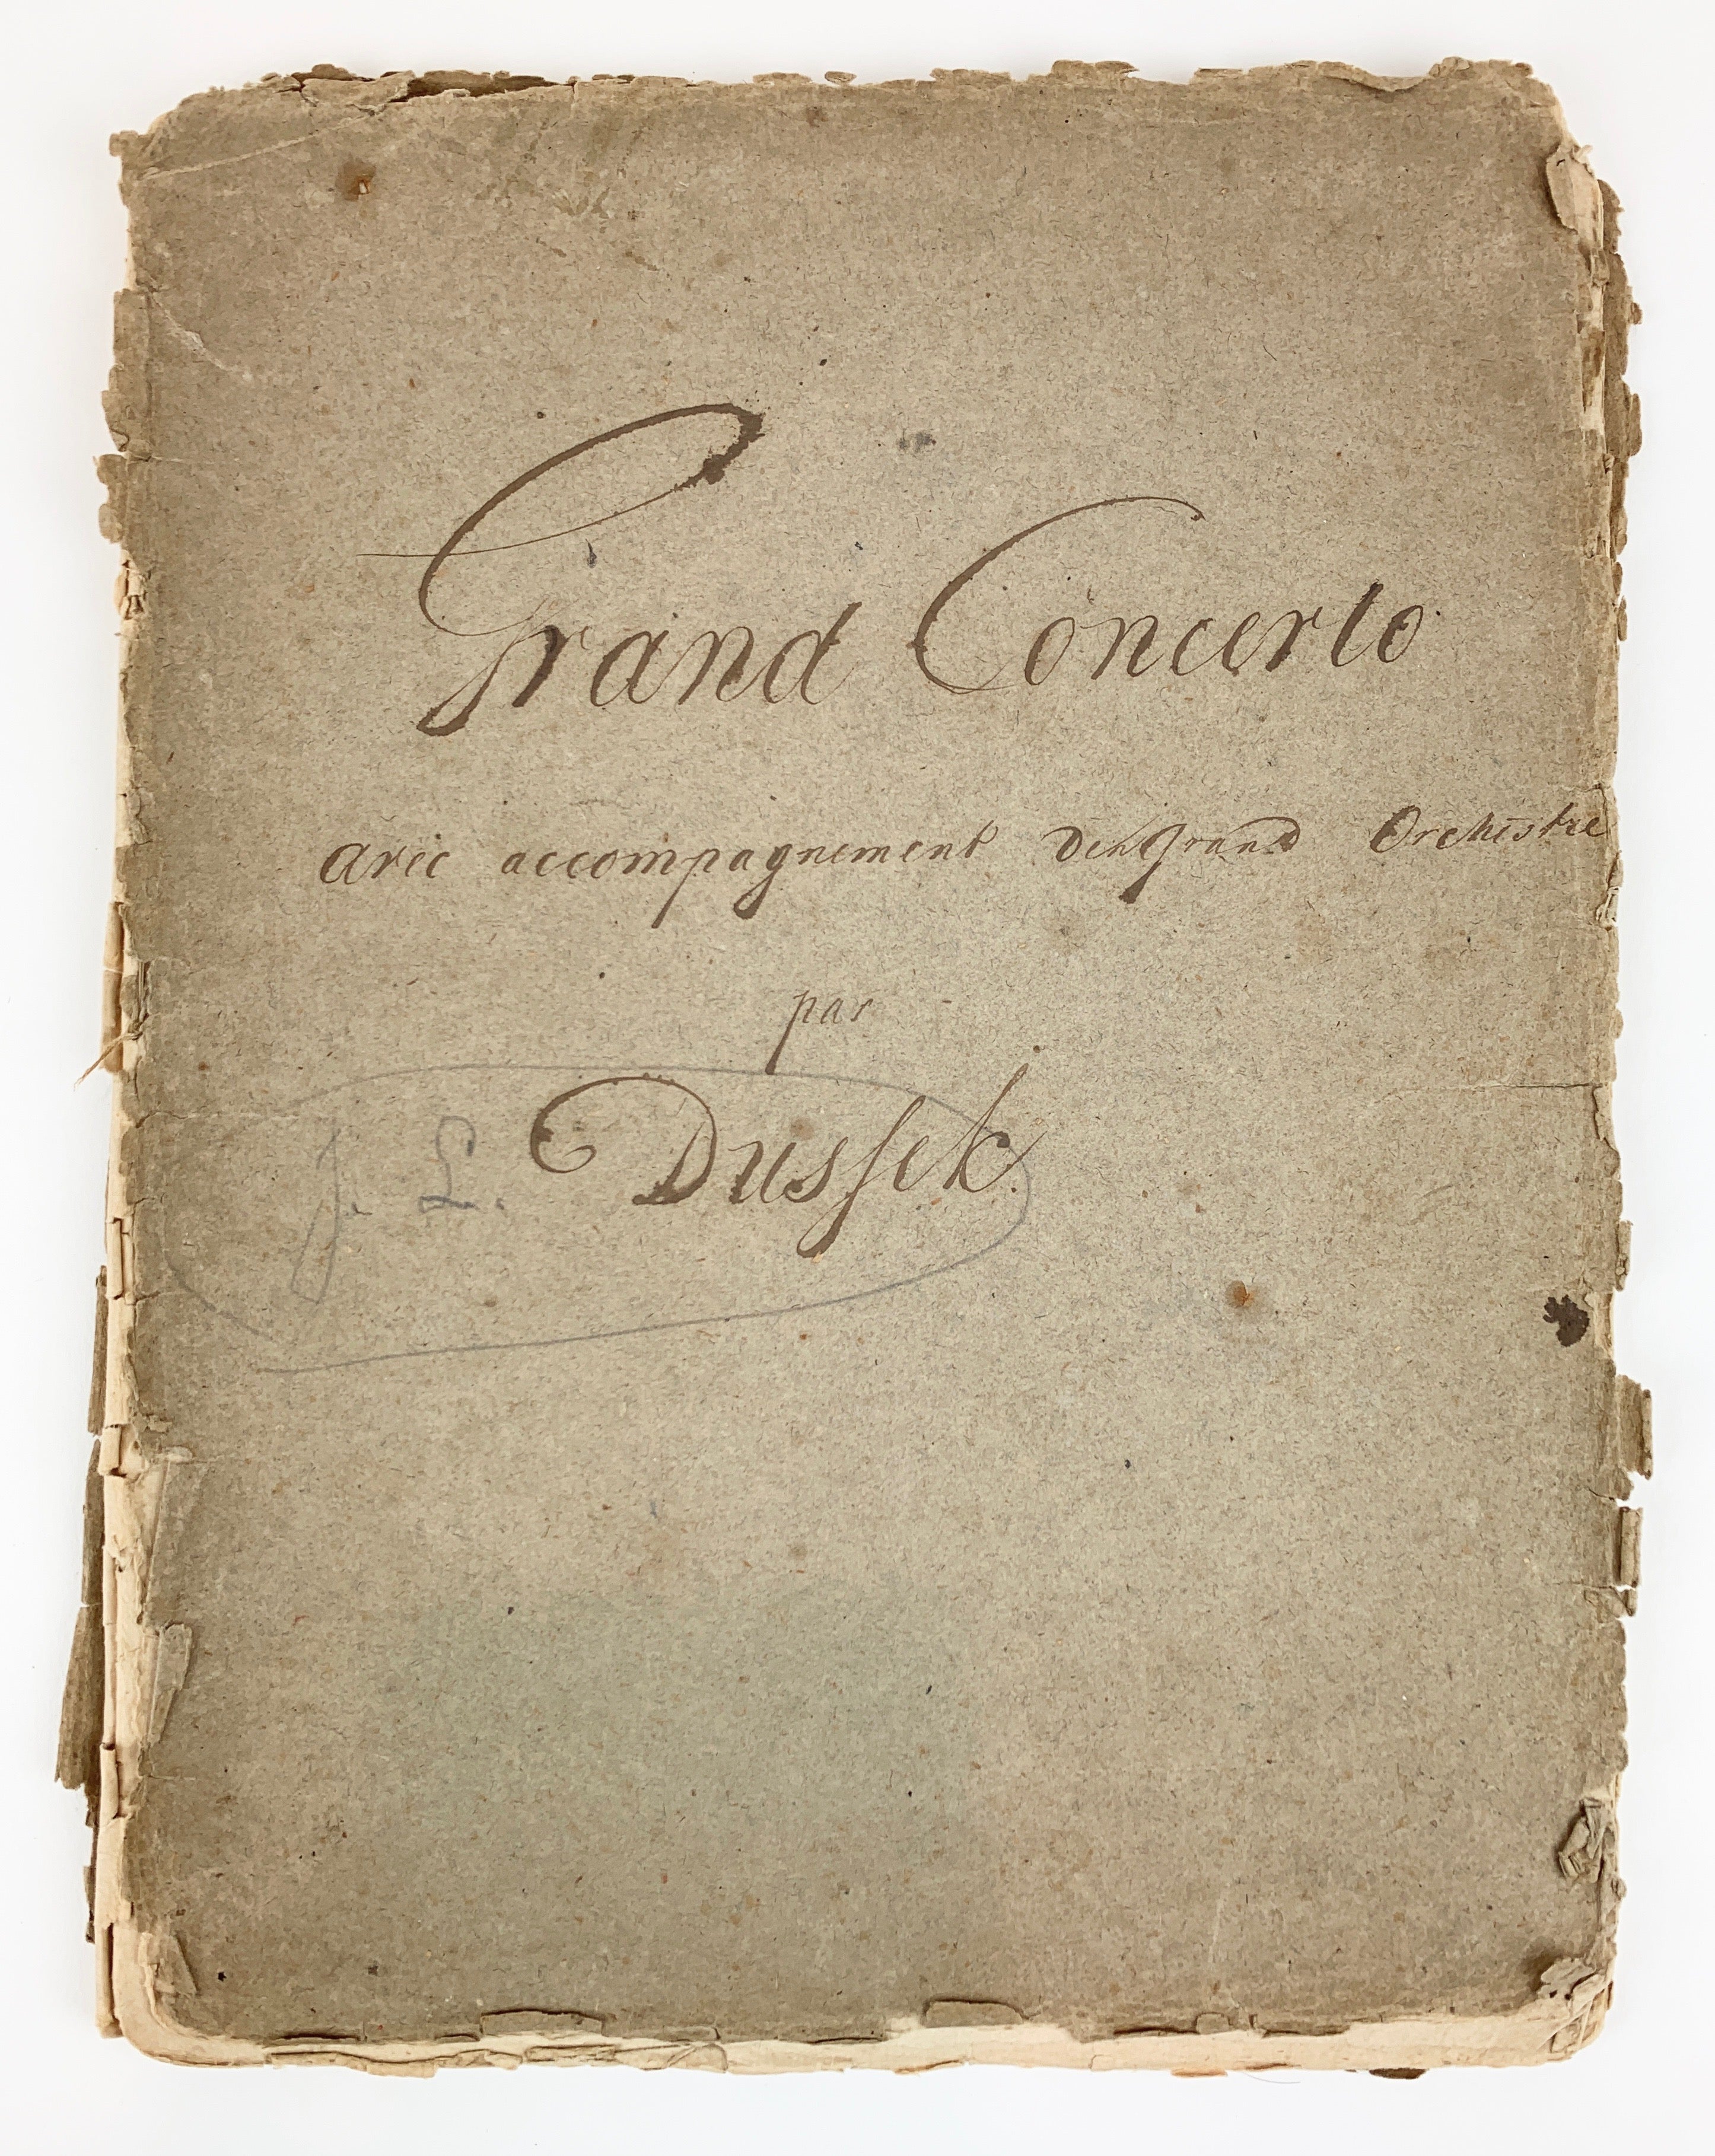 Grand Concerto
avec accompagnement d'un grand Orchestre
par
J. L. Dussek.